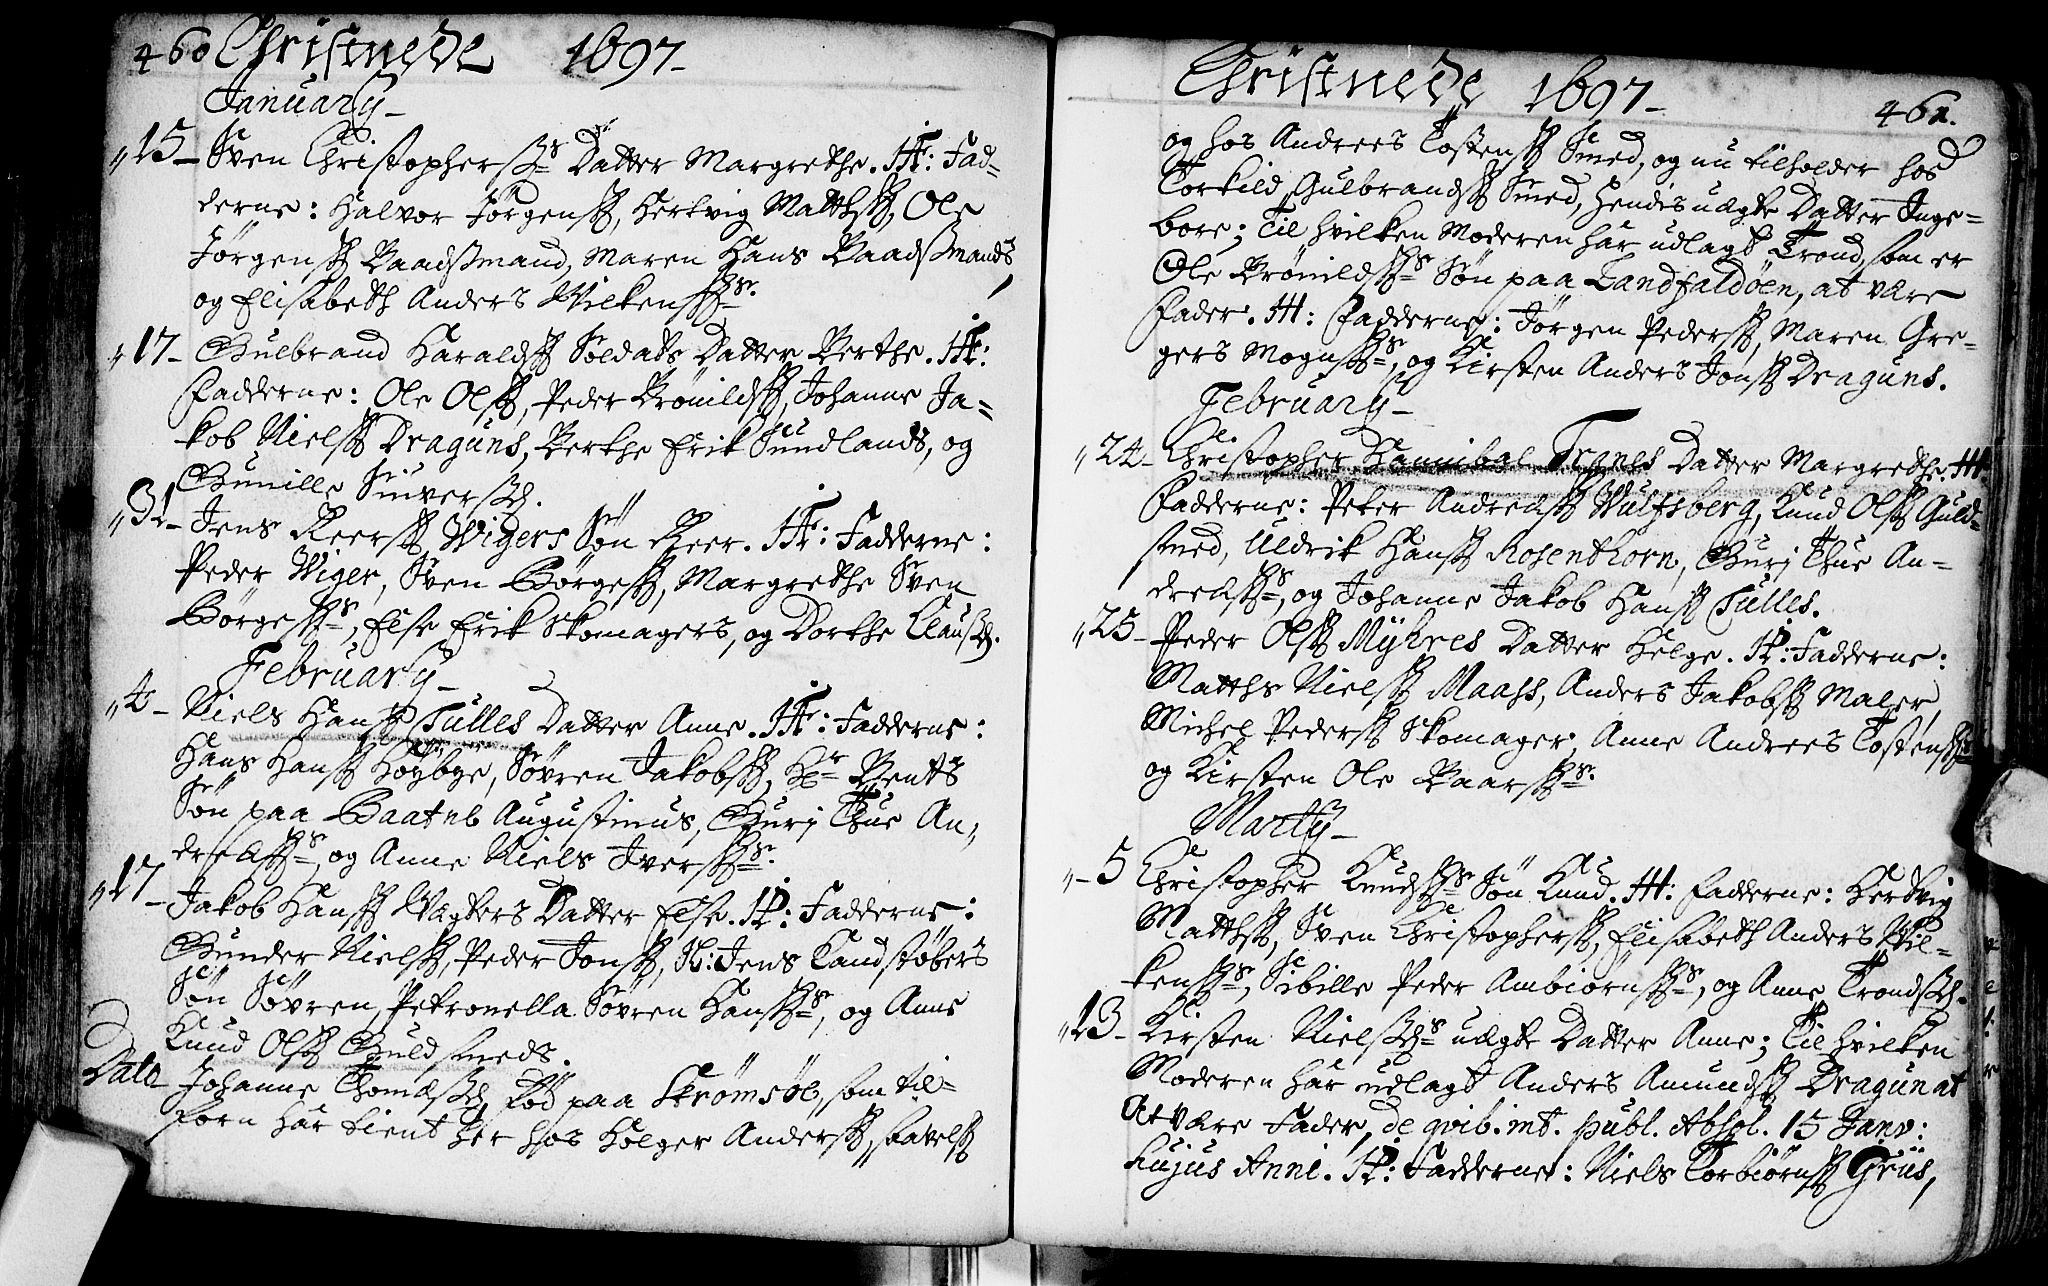 460 Christnede 1697
January
15 Sven Christophersss Datter Margrethe. H: Fad=
derne: Halvor Jørgenss, Hertvig Matthss, Ole
Jørgenss Raadssmand, Maren Hans Raadssmands
og Elisabeth Anders Wilkensss.
17 Gulbrand Haraldss Soldats Datter Berthe. H:
Fadderne: Ole Olss, Peder Brønildss, Johanne Ja=
kob Nielss Draguns, Berthe Erik Sundlands, og
Gunille Siuverssd.
31 Jens Reerss Wigers Søn Reer. H: Fadderne:
Peder Wiger, Sven Børgess, Margrethe Sven
Børgesss, Else Erik Skomagers, og Dorthe Claussd.
February
4 Niels Hanss Tulles Datter Anne. H: Fadderne:
Hans Hanss Høybye, Søvren Jakobss, Hr Bents
Søn paa Augustinus, Guri Thue An=
dreæsss, og Anne Niels Iversss.
17 Jakob Hanss Vægters Datter Else. H: Fadderne:
Gunder Nielss, Peder Jonss, H: Jens Kandstøbers
Søn Søvren, Petronella Søvren Hansss, og Anne
Knud Olss Guldsmeds.
Dato Johanne Thomæssd, fød paa Skrømsøe, som til=
forn har tient her hos Holger Anderss, Pavelss
Christnede 1697 461.
og hos Andrees Tostenss Smed, og nu tilholder hos
Torkild Gulbrandss Smed, hendis uægte Datter Inge=
bore; Til hvilken Moderen har udlagt Trond, som er
Ole Brønildsss Søn paa Landfaldøen, at være
Fader. H: Fadderne: Jørgen Pederss, Maren Gre=
gers Mogensss, og Kirsten Anders Jonss Draguns.
February
24 Christopher Hannibal Tranes Datter Margrethe. H:
Fadderne: Peter Andreæss Wulfsberg, Knud Olss Guld=
smed, Uldrik Hanss Rosenthorn, Guri Thue An=
dreæsss, og Johanne Jakob Hanss Tulles.
25 Peder Olss Myhres Datter Helge. H: Fadderne:
Matths Nielss Maass, Anders Jakobss Maler,
Michel Pederss Skomager, Anne Andrees Tostensss
og Kirsten Ole Baarsss.
Marty
5 Christopher Knudsss Søn Knud. H: Fadderne: Hertvig
Matthss, Sven Christopherss, Elisabeth Anders Wil=
kensss, Sibille Peder Ambiørnsss, og Anne Trondssd.
13 Kirsten Nielssds uægte Datter Anne; Til hvilken
Moderen har udlagt Anders Amundss Dragun at
At være Fader, de qvib. int. publ. Absol. 15 Janv:
hujus Anni. H: Fadderne: Niels Torbiørnss Griis,